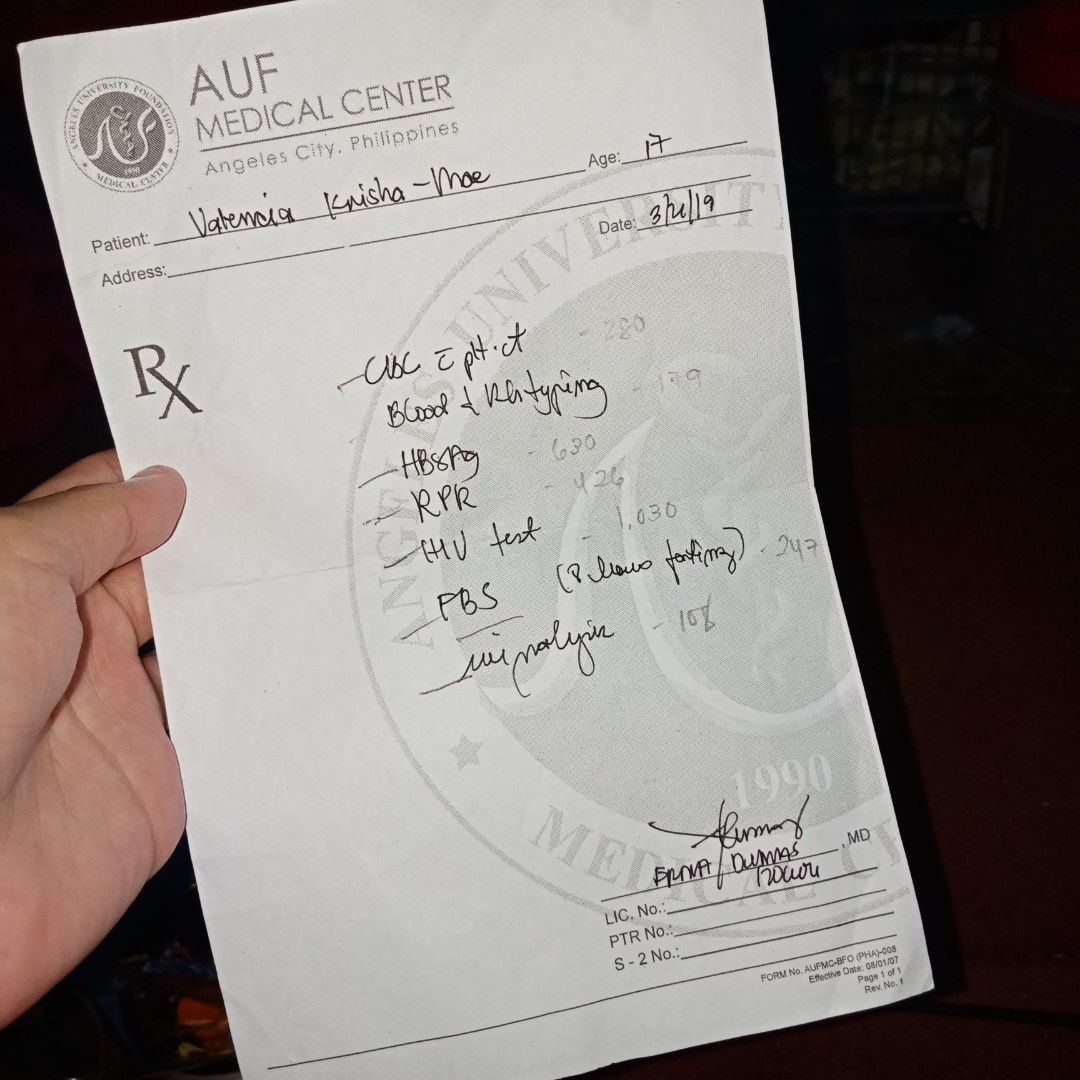 AUF
MEDICAL CENTER
Angeles City, Philippines
ANGELES UNIVERSITY FOUNDATION
MEDICAL CENTER
Patient: Valencia Krisha-Mae Age: 17
Address: Date: 3/21/19
Rx
CBC c plt.ct - 280
Blood & Rh typing - 179
HBSAg - 630
RPR - 426
HIV test - 1,030
FBS (8 hours fasting) - 247
urinalysis - 108
ANGELES UNIVERSITY
1990
MEDICAL CE
, MD
LIC. No.:
PTR No.:
S - 2 No.:
FORM No. AUFMC-BFO (PHA)-008
Effective Date: 08/01/07
Page 1 of 1
Rev. No. 1